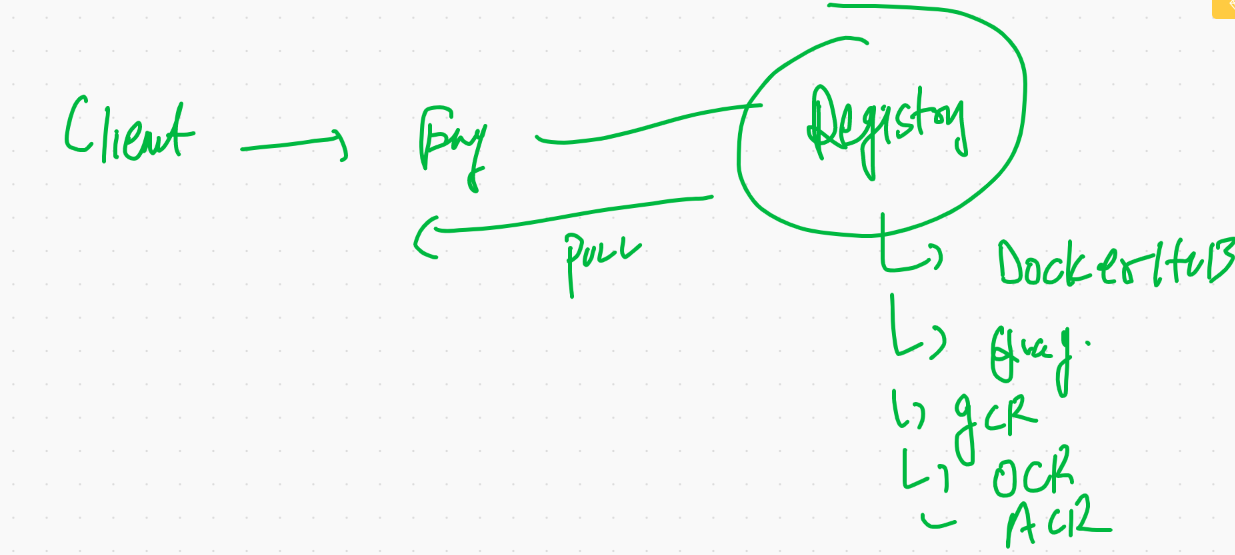 Client
Eng
Registry
Pull
DockerHuB
Quay.
gCR
OCR
ACR